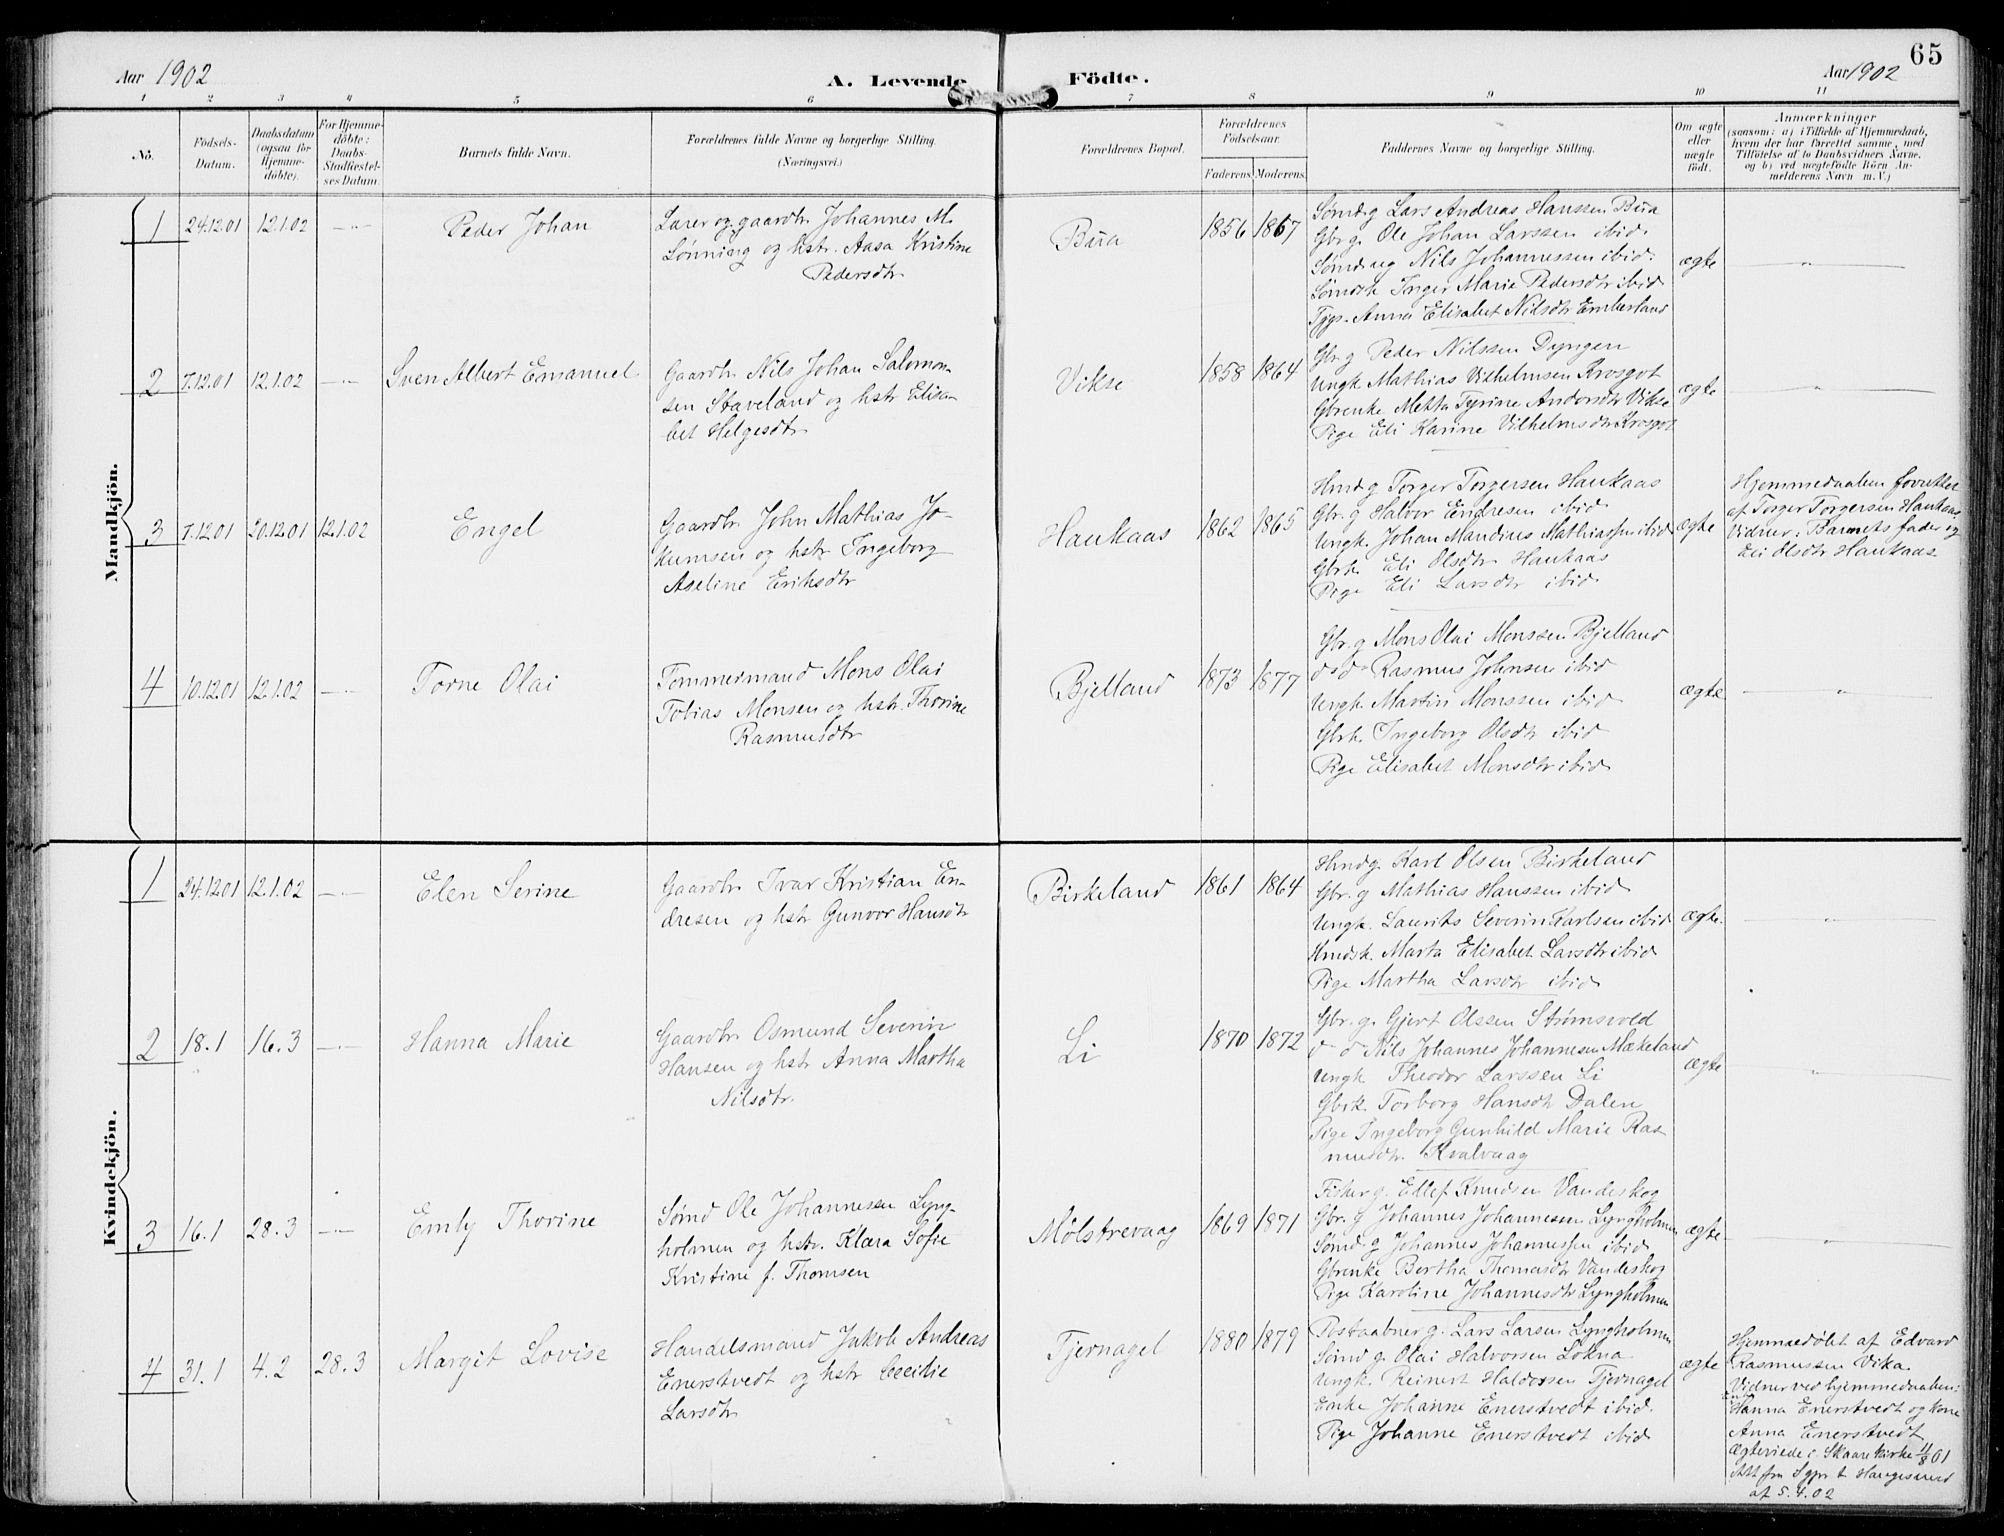 65
Aar 1902
A. Levende Födte.
Aar 1902
1 2 3 4 5 6 7 8 9 10 11
No.
Födsels-
Datum.
Daabsdatum
(ogsaa for
Hjemme-
döbte).
For Hjemme-
döbte:
Daabs-
Stadfæstel-
ses Datum.
Barnets fulde Navn.
Forældrenes fulde Navne og borgerlige Stilling.
(Næringsvei.)
Forældrenes Bopæl.
Forældrenes
Födselsaar.
Faderens. Moderens.
Faddernes Navne og borgerlige Stilling.
Om ægte
eller
uægte
födt.
Anmærkninger
(saasom: a) i Tilfælde af Hjemmedaab,
hvem der har forrettet samme, med
Tilföielse af to Daabsvidners Navne,
og b) ved uægtefödte Börn An-
melderens Navn m. V.)
Mandkjön.
1 24.12.01 12.1.02 -"- Peder Johan
Lærer og gaardbr Johannes M.
Lønning og hstr. Aasa Kristine
Pedersdtr
Bua 1856 1867
Sømd g Lars Andreas Hanssen Bua
Gbr g. Ole Johan Larssen ibid.
Sømd ug Nils Johannessen ibid.
Sømdk Inger Marie Pedersdtr ibid
Tjgp. Anna Elisabet Nilsdtr Emberland
ægte "
2 7.12.01 12.1.02 -"- Sven Albert Emanuel
Gaardbr Nils Johan Salomon-
sen Staveland og hstr Elisa-
bet Helgesdtr
Vikse 1858 1864
Gbr g Peder Nilssen Dyngen
Ungk Mathias Vilhelmsen Krosgot
Gbrenke Metta Tyrine Andersdtr Vikse
Pige Eli Karine Vilhelmsdtr Krosgot
ægte "
3 7.12.01 20.12.01 12.1.02 Engel
Gaardbr John Mathias Jo-
kumsen og hstr Ingeborg
Aseline Eriksdtr
Haukaas 1862 1865
Hmd g Torger Torgersen Haukaas
Gbr. g Halvor Endresen ibid
Ungk. Johan Mandius Mathiassen ibid
Gbrk Eli Olsdtr Haukaas
Pige Eli Larsdtr ibid
ægte
Hjemmedaaben forrettet
af Torger Torgersen Haukaas
Vidner: Barnets fader og
Eli Olsdtr Haukaas.
4 10.12.01 12.1.02 -"- Torne Olai
Tømmermand Mons Olai
Tobias Monsen og hstr. Thorine
Rasmusdtr
Bjelland 1873 1877
Gbr. g Mons Olai Monssen Bjelland
d d Rasmus Johnsen ibid
Ungk Martin Monssen ibid
Gbrk. Ingeborg Olsdtr ibid
Pige Elisabet Monsdtr ibid
ægte "
Kvindekjön.
1 24.12.01 12.1.02 -"- Elen Serine
Gaardbr Ivar Kristian En-
dresen og hstr Gunvor Hansdtr
Birkeland 1861 1864
Hmd g Karl Olsen Birkeland
Gbr. g Mathias Hanssen ibid
Ungk. Laurits Severin Karlsen ibid
Hmdsk. Marta Elisabet Larsdtr ibid
Pige Martha Larsdtr ibid
ægte. "
2 18.1 16.3 -"- Hanna Marie
Gaardbr Osmund Severin
Hansen og hstr Anna Martha
Nilsdtr.
Li 1870 1872
Gbr. g. Gjert Olssen Strømsvold
d d Nils Johannes Johannesen Mækeland
Ungk Theodor Larssen Li
Gbrk. Torborg Hansdtr Dalen
Pige Ingeborg Gunhild Marie Ras-
musdtr. Kvalvaag
ægte "
3 16.1 28.3 -"- Emly Thorine
Sømd Ole Johannesen Lyng-
holmen og hstr. Klara Sofie
Kristine f. Thomsen
Mølstrevaag 1869 1871
Fisker g. Ellef Knudsen Vandeskog
Gbr. g Johannes Johannessen Lyngholmen
Sømd. g Johannes Johannessen ibid
Gbrenke Bertha Thomasdtr Vandeskog
Pige Karoline Johannesdtr Lyngholmen
ægte "
4 31.1 4.2 28.3 Margit Lovise
Handelsmand Jakob Andreas
Enerstvedt og hstr Cecilie
Larsdtr
Tjernagel 1880 1879
Postaabner g. Lars Larsen Lyngholmen
Sømd g. Olai Halvorsen Lokna
Ungk. Reinert Haldorsen Tjernagel
Enke Johanne Enerstvedt ibid.
Pige Johanne Enerstvedt ibid
ægte
Hjemmedøbt af Edvard
Rasmussen Vika.
Vidner ved hjemmedaaben:
Hanna Enerstvedt og kone
Anna Enerstvedt.
Ægteviede i Skaare kirke 11/8 01
Att fra Sgpr t Haugesund
af 5.4.02